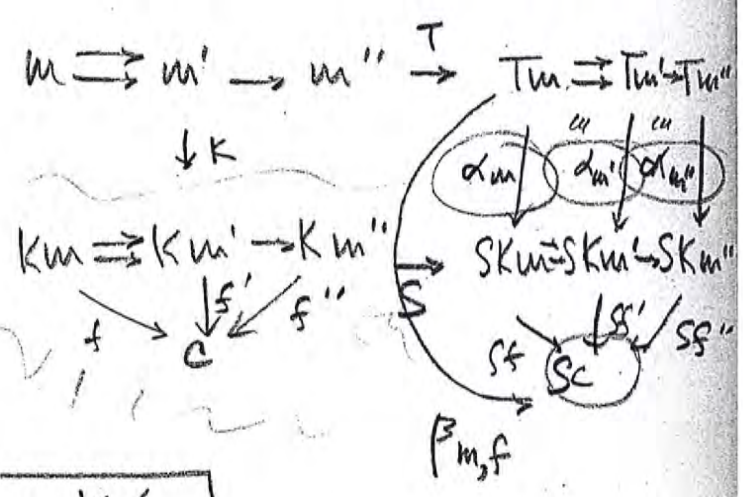 T
m ⇉ m' → m'' → Tm ⇉ Tm' → Tm''
↓ K
αm αm' αm''
Km ⇉ Km' → Km'' → SKm ⇉ SKm' → SKm''
S
f f' f'' Sf Sf' Sf''
C Sc
βm,f